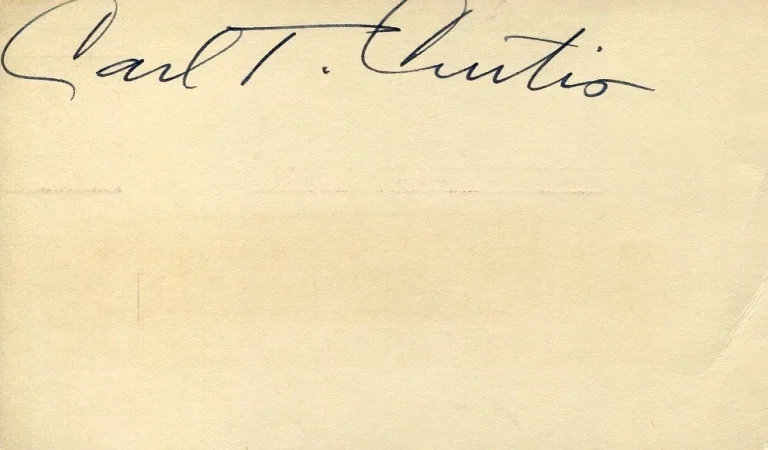 Carl T. Curtis